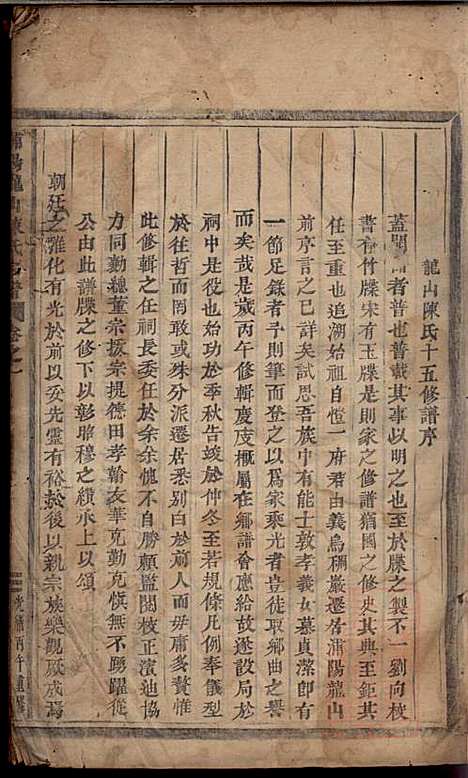 龍山陳氏十五修譜序
蓋聞譜者普也普載其事以明之也至於牒之製不一劉向校
書有竹牒宋有玉牒是則家之修譜猶國之修史其典至鉅其
任至重也追溯始祖自愷一府君由義烏稠巖遷居浦陽龍山
前序言之已詳矣試思吾族中有能士敦孝義女慕貞潔卽有
一節足錄者予則筆而登之以爲家乘光者豈徒取鄉曲之譽
而矣哉是歲丙午修輯慶茂概屬在鄉譜會應給故遂設局於
祠中是役也始功於季秋告竣於仲冬至若規條凡例奉儀型
於往哲而罔敢或殊分派遷居悉別白於前人而毋庸多贅惟
此修輯之任祠長委任於余余愧不自勝賴監閱校正濱迪協
力同勷總董宗振宗提德田孝翰友華克勤克慎無不踴躍從
公由此譜牒之修下以彰昭穆之績承上以頌
朝廷之雅化有光於前以妥先靈有裕於後以親宗族樂觀厥成焉
浦陽龍山陳氏宗譜 卷之一
光緒丙午重修